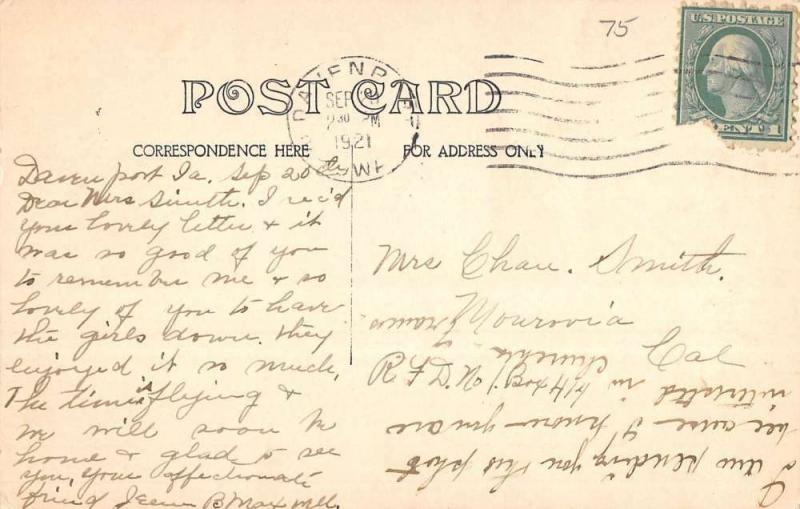 75
U.S. POSTAGE
CENT 1
POST CARD
DAVENPORT
SEP
2 30 PM
1921
CORRESPONDENCE HERE
FOR ADDRESS ONLY
Davenport Ia. Sep 20
Dear Mrs Smith. I rec'd
your lovely letter & it
was so good of you
to remember me & so
lovely of you to have
the girls down. They
enjoyed it so much.
The time is flying &
we will soon be
home & glad to see
you, your affectionate
friend B Maxwell
Mrs Chas. Smith.
Monrovia
Cal
R F D. N. 1 Box 414
I am sending you this photo
because I know you are
interested in churches